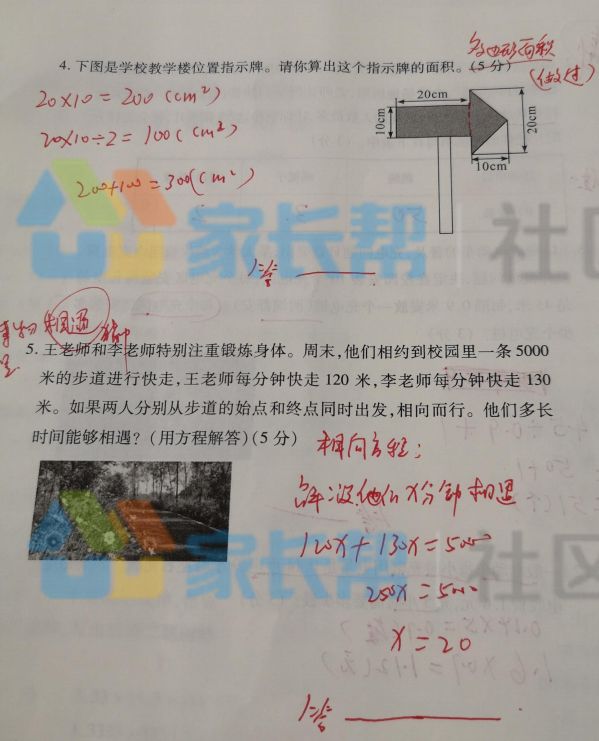 多边形面积
4. 下图是学校教学楼位置指示牌。请你算出这个指示牌的面积。(5分)
(做过)
20×10=200(cm²)
20×10÷2=100(cm²)
200+100=300(cm²)
20cm
10cm
20cm
10cm
家长帮 社区
答
相遇
5. 王老师和李老师特别注重锻炼身体。周末,他们相约到校园里一条5000
米的步道进行快走,王老师每分钟快走120米,李老师每分钟快走130
米。如果两人分别从步道的始点和终点同时出发,相向而行。他们多长
时间能够相遇?(用方程解答)(5分)
相向方程;
解:设他们X分钟相遇
家长帮 社区
120X+130X=5000
250X=5000
X=20
答